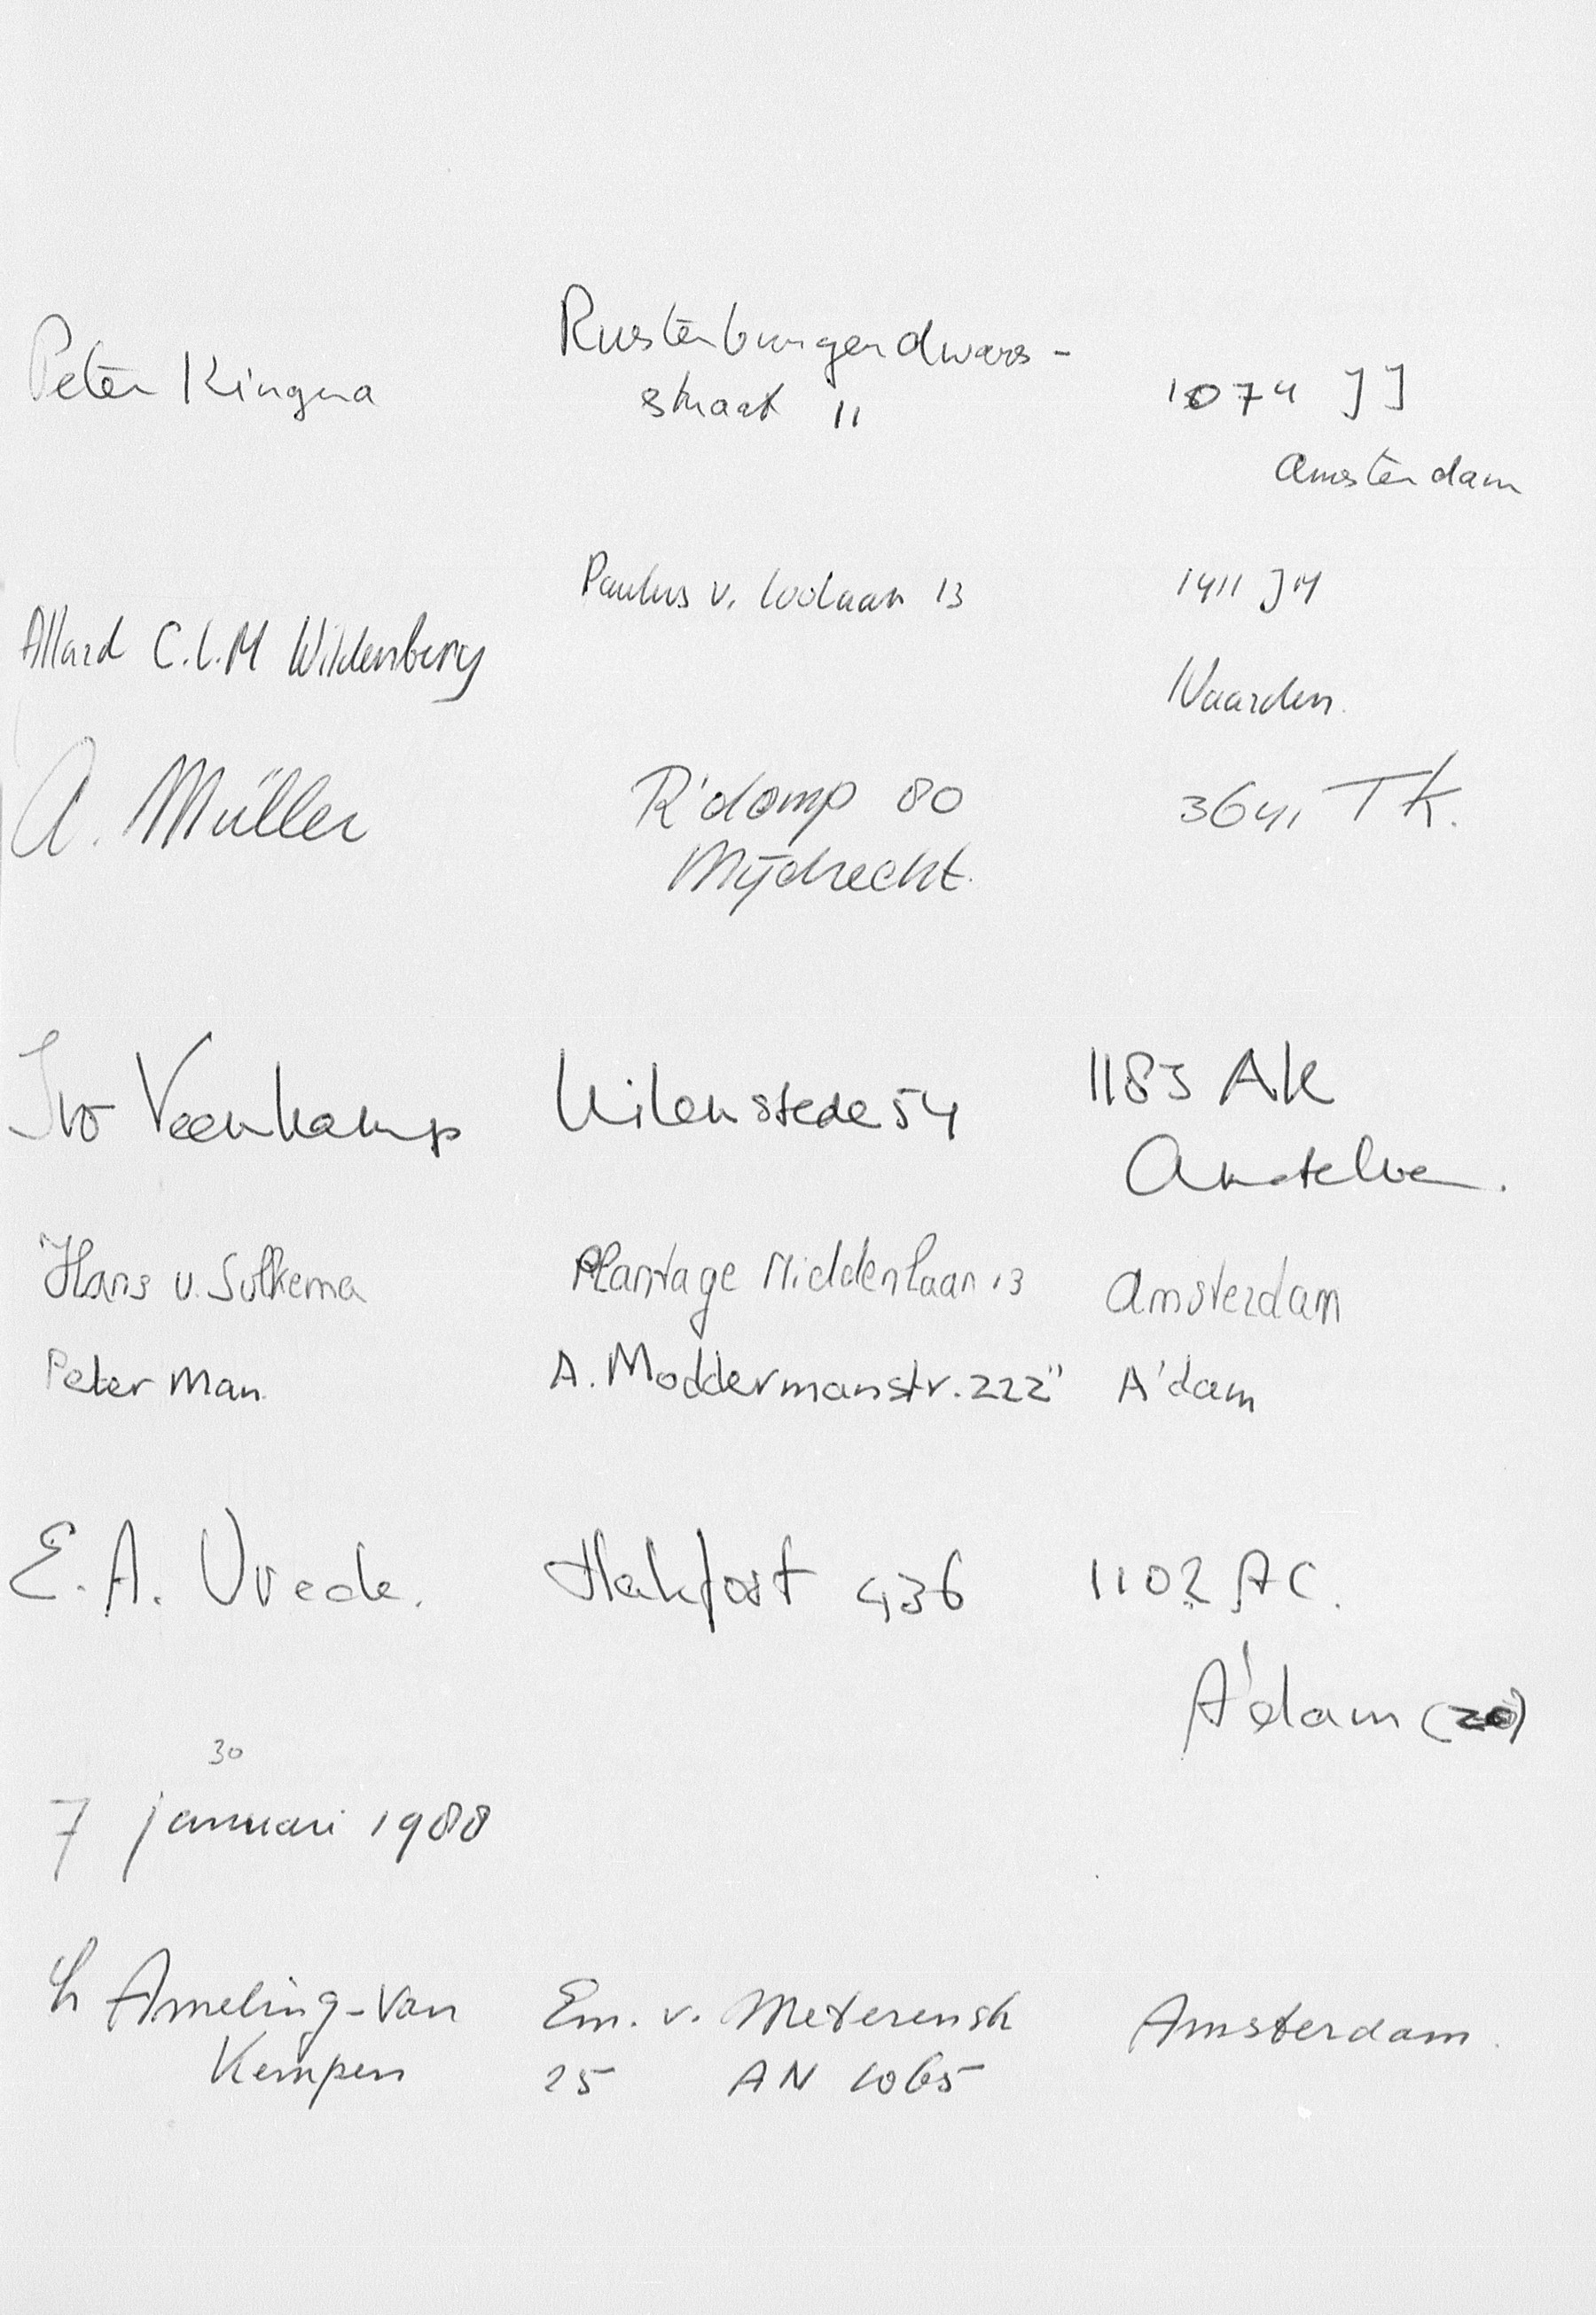 Peter Kingma
Rustenburgerdwars-
straat 11
1074 JJ
Amsterdam
Paulus v. Loolaan 13
1411 JM
Allard C.L.M Wildenberg
Naarden.
A. Müller
R'domp 80
3641 TK.
Mijdrecht.
Ivo Veenkamp
Uilenstede 54
1183 AK
Amstelveen.
Hans v. Sulkema
Plantage Middenlaan 13
Amsterdam
Peter Man
A. Moddermanstr. 222"
A'dam
E. A. Vrede.
Hakfort 436
1102 AC.
A'dam (20)
30
7 januari 1988
Ameling-Van
Em. v. Meterenstr
Amsterdam.
Kempen
25 AN 1065